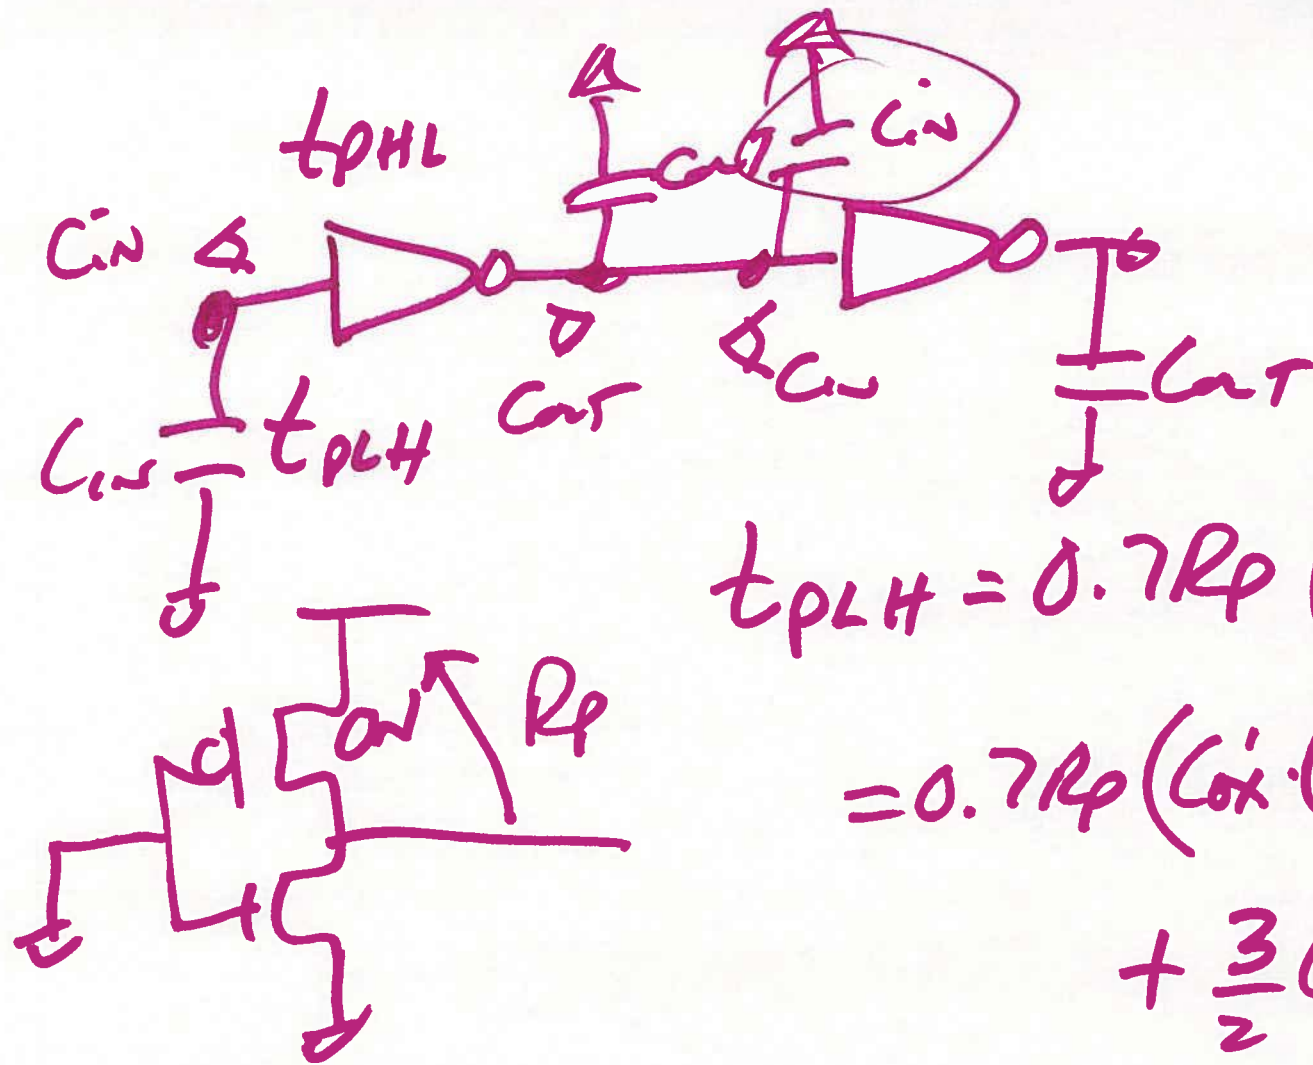 tPHL
Cout
Cin
Cin
Cout
Cin
Cout
Cin
tPLH
tPLH = 0.7Rp (
ON
Rp
= 0.7Rp (C'ox · (
+ 3/2 (